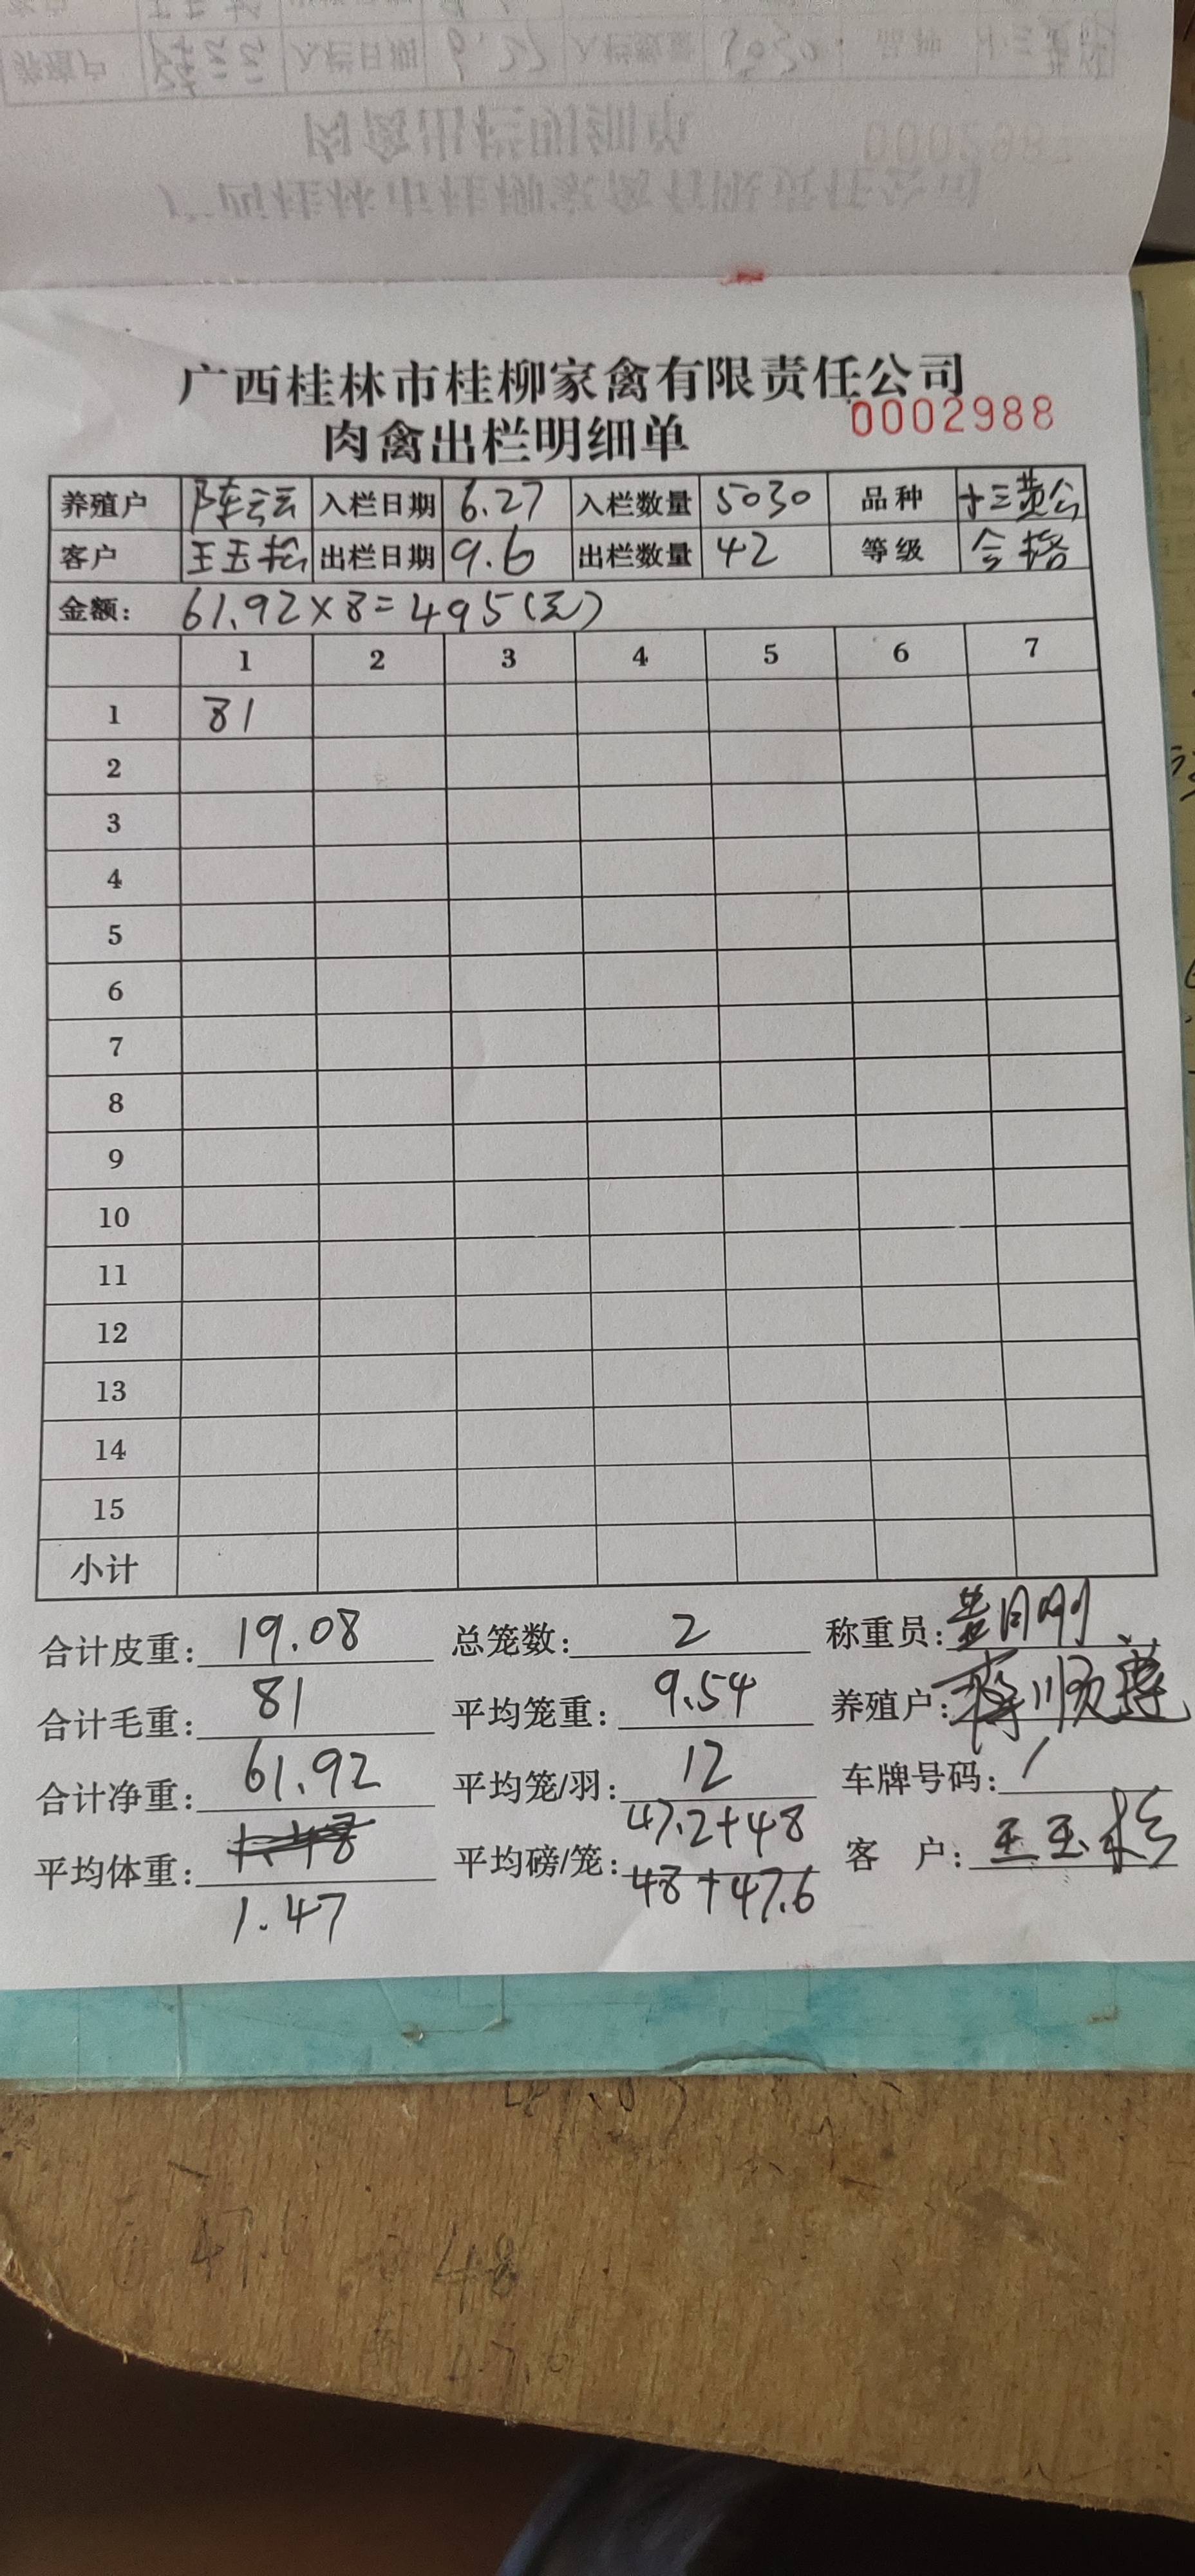 广西桂林市桂柳家禽有限责任公司
肉禽出栏明细单
0002988
养殖户 陈云云 入栏日期 6.27 入栏数量 5030 品种 十三黄公
客户 王玉松 出栏日期 9.6 出栏数量 42 等级 合格
金额: 61.92×8=495(元)
1 2 3 4 5 6 7
1 81
2
3
4
5
6
7
8
9
10
11
12
13
14
15
小计
合计皮重: 19.08 总笼数: 2 称重员:
合计毛重: 81 平均笼重: 9.54 养殖户:
合计净重: 61.92 平均笼/羽: 12 车牌号码: /
平均体重: 1.48 平均磅/笼: 47.2+48 客 户: 王玉松
1.47 48+47.6